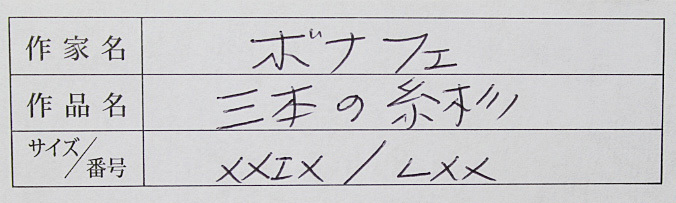 作家名 ボナフェ
作品名 三本の糸杉
サイズ/番号 XXIX / LXX